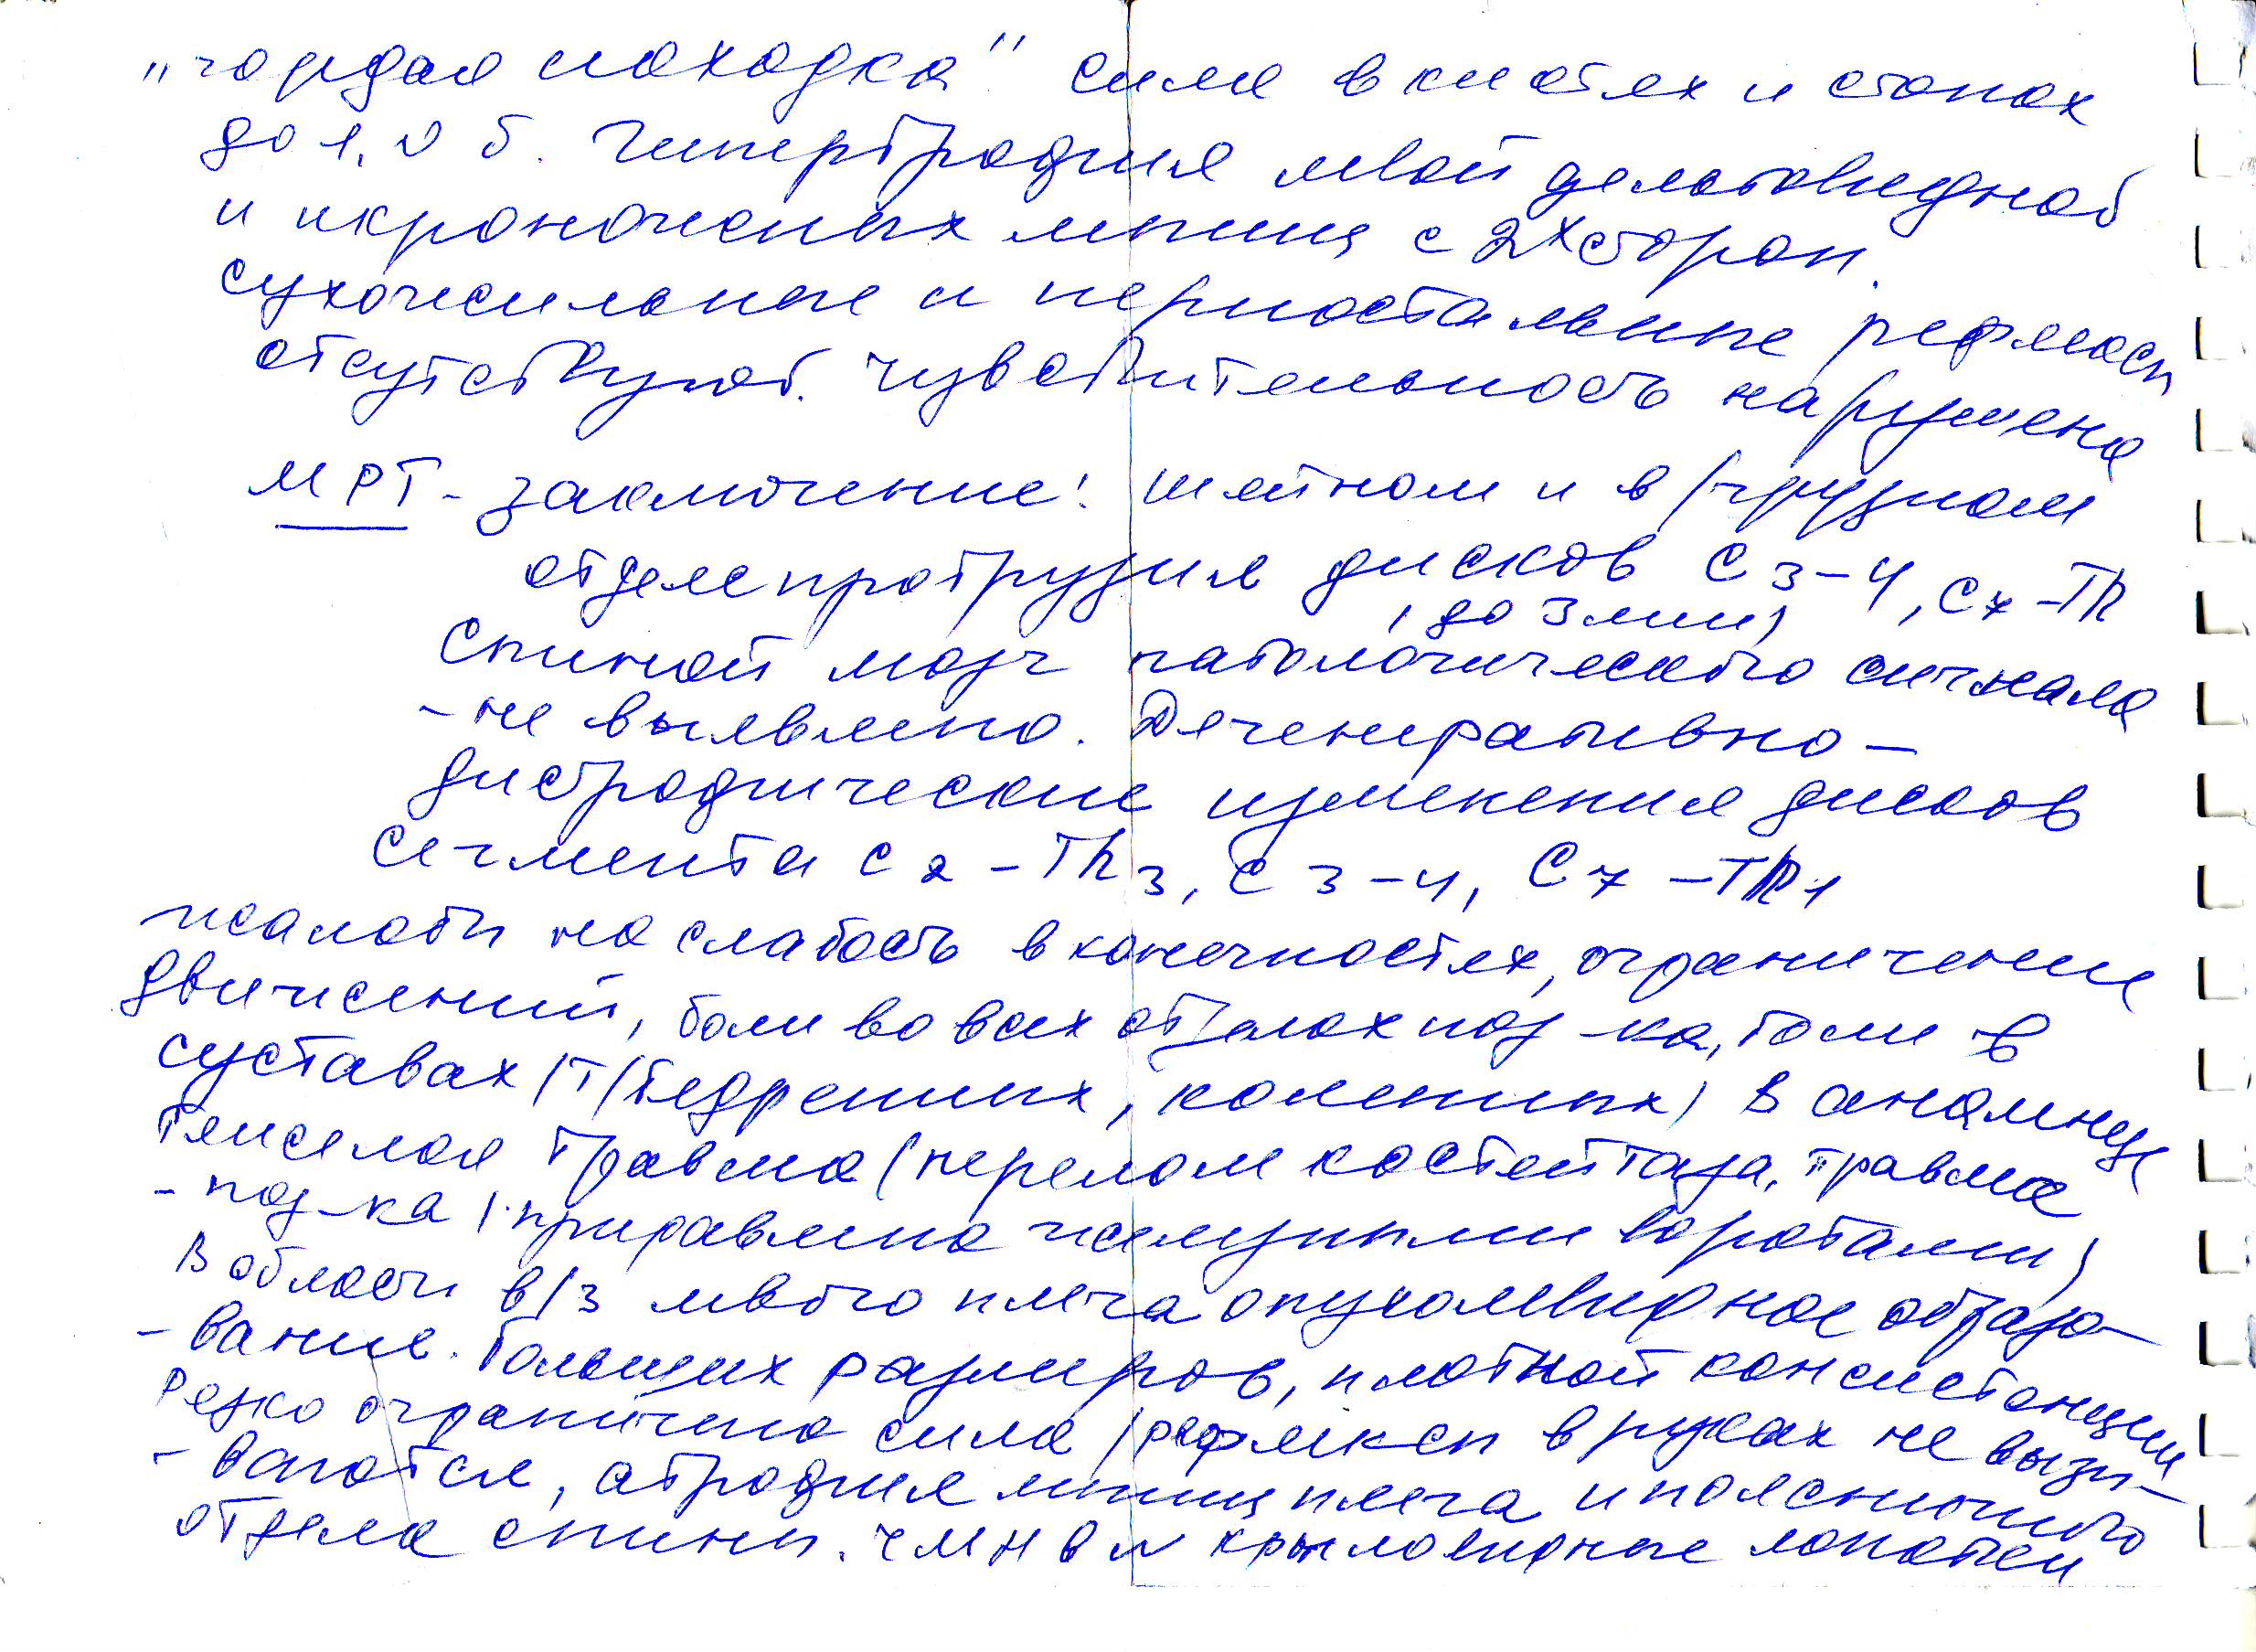 "гордая походка" сила в кистях и стопах
до 1,0 б. Гипертрофия левой дельтовидной
и икроножных мышц с 2х сторон.
сухожильные и периостальные рефлексы
отсутствуют. Чувствительность нарушена
МРТ - заключение: шейном и в/грудном
отделе протрузия дисков С3-4, С7-Th
(до 3 мм)
Спиной мозг патологического сигнала
- не выявлено. Дегенеративно-
дистрофические изменения дисков
сегмента С2-Th3, С3-4, С7-Th1
жалобы на слабость в конечностях, ограничение
движений, боли во всех отделах поз-ка, боли в
суставах (т/бедренных, коленных) В анамнезе
тяжелая травма (перелом костей таза, травма
- поз-ка (придавлена железными воротами)
В области в/3 левого плеча опухолевидное образо-
- вание. больших размеров, плотной консистенции
Резко ограничена сила, рефлексы в руках не вызы-
- ваются, атрофия мышц плеча и поясничного
отдела спины. ЧМН в N крыловидные лопатки